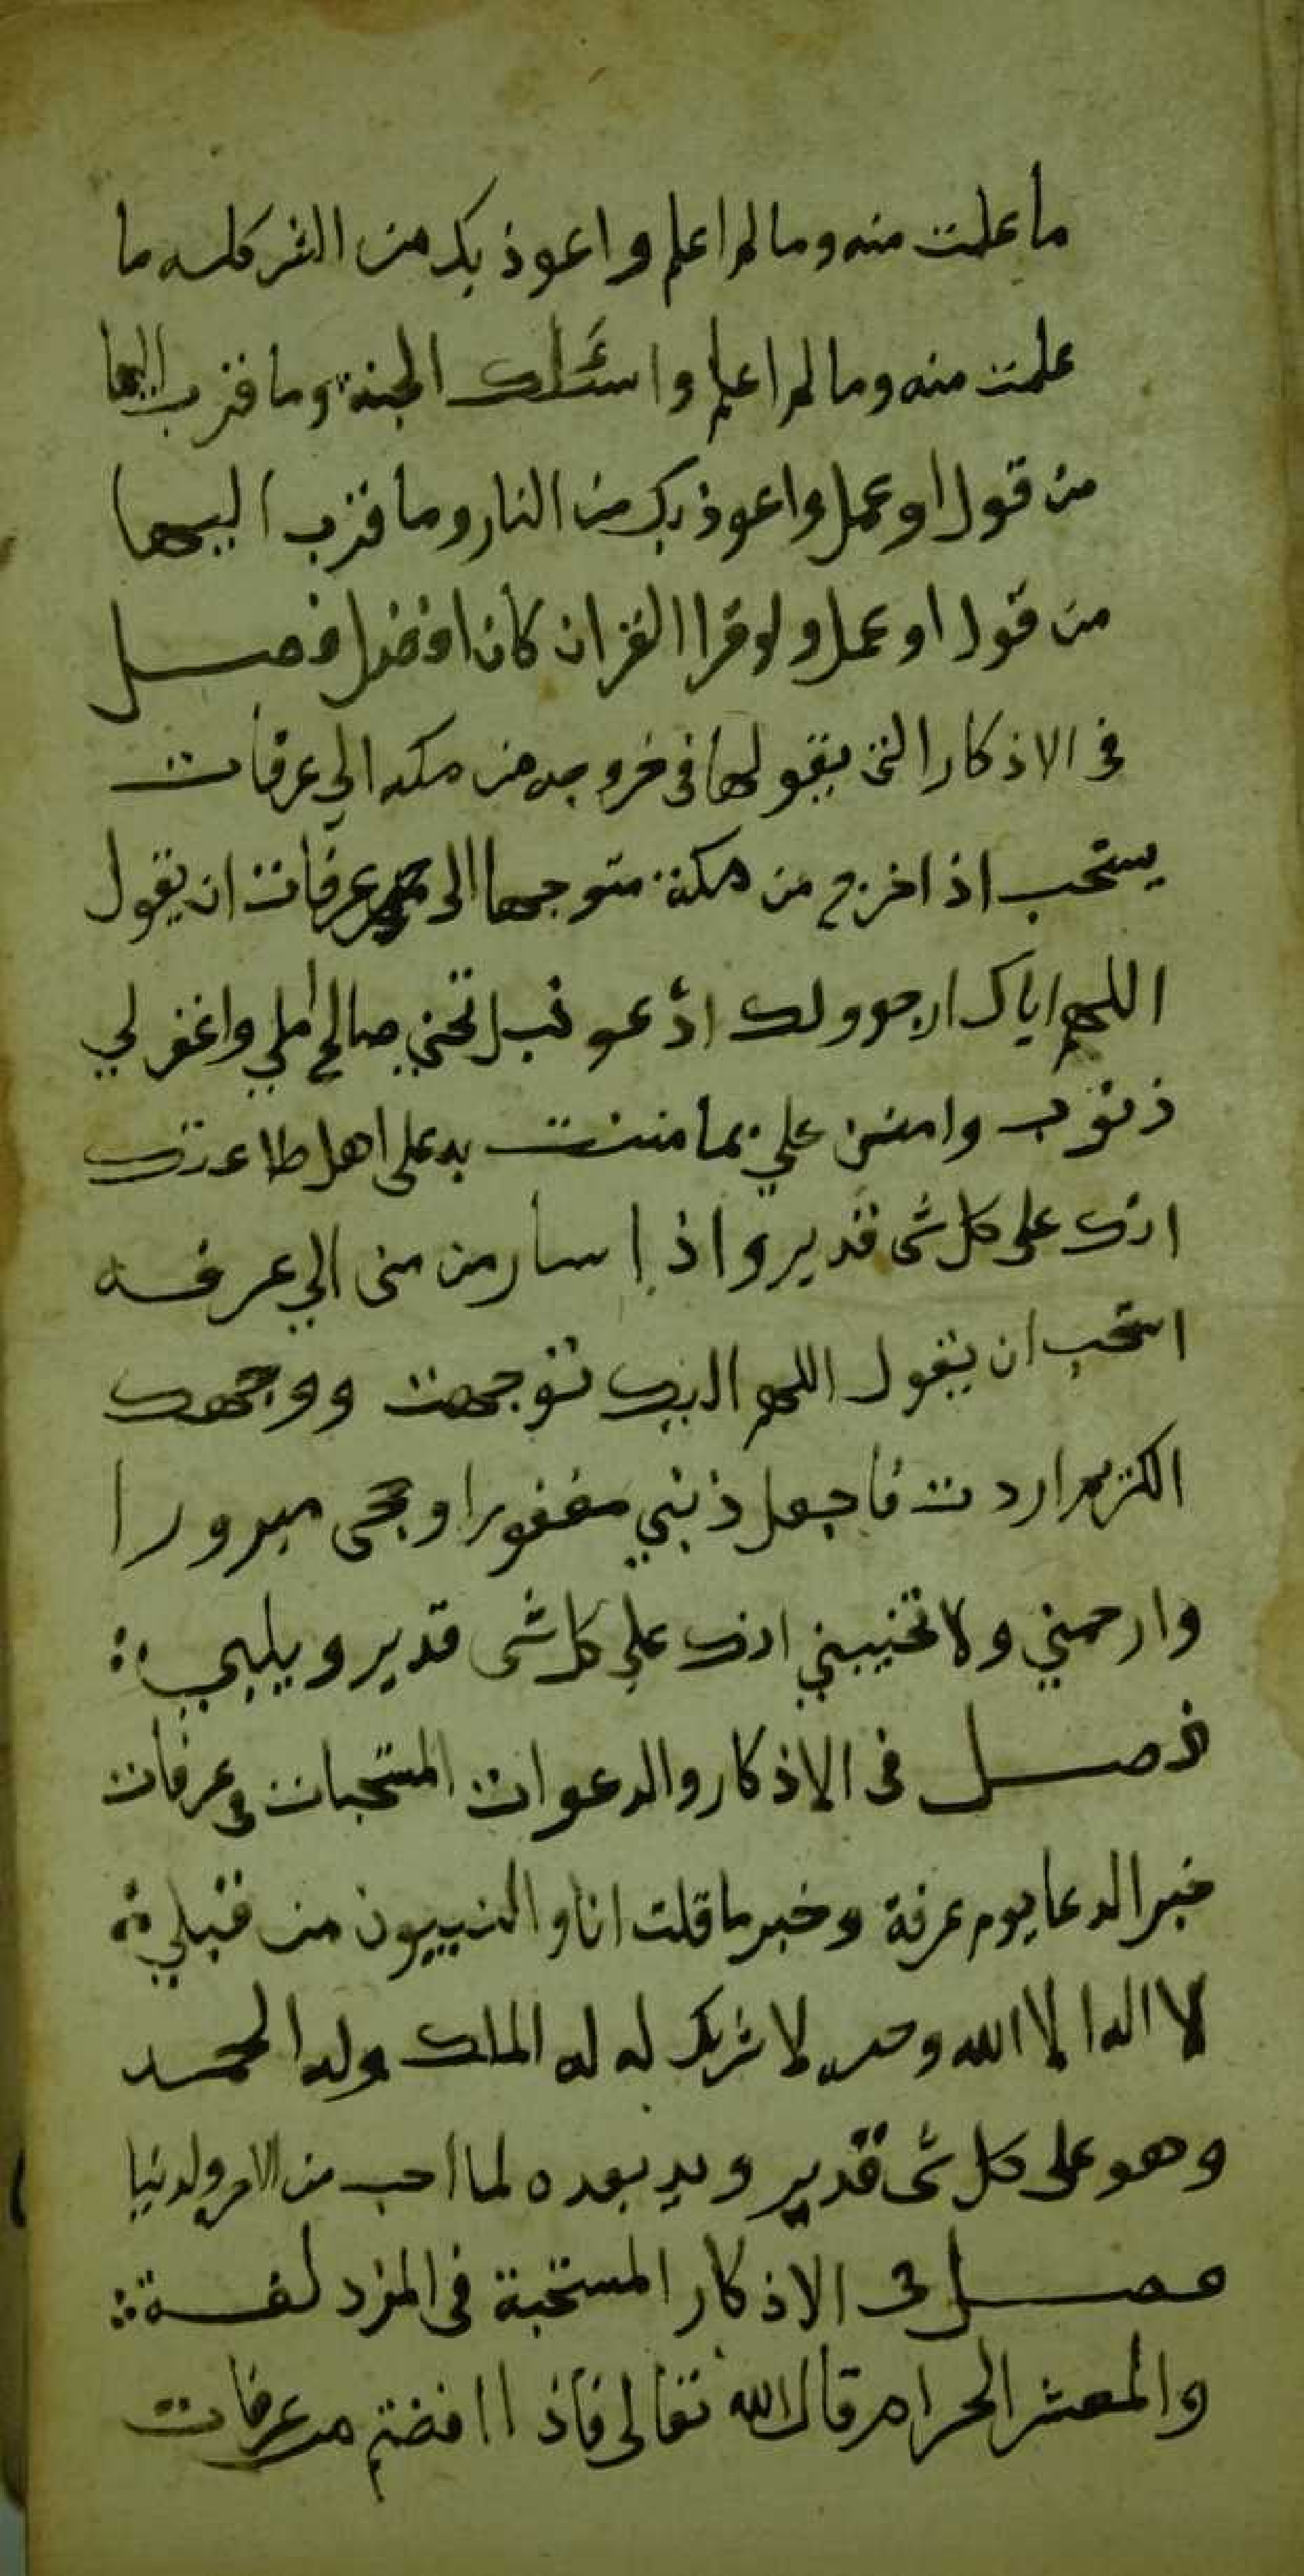 ما علمت منه وما لم اعلم واعوذ بك من الشر كله ما
علمت منه وما لم اعلم واسئلك الجنة وما قرب اليها
من قول او عمل واعوذ بك من النار وما قرب اليها
من قول او عمل ولو قرا القران كان افضل فصل
فى الاذكار التى يقولها فى خروجه من مكه الي عرفات
يستحب اذا خرج من مكة متوجها الى عرفات ان يقول
اللهم اياك ارجو ولك ادعو فبلغني صالح املي واغفر لي
ذنوب وامنن علي بما مننت به على اهل طاعتك
انك على كل شى قدير واذا سار من منى الي عرفه
استحب ان يقول اللهم اليك توجهت ووجهك
الكريم اردت فاجعل ذنبي مغفورا وحجى مبرورا
وارحمني ولا تخيبني انك علي كل شى قدير ويلبي :
فصل فى الاذكار والدعوات المستحبات فى عرفات
خير الدعا يوم عرفة وخير ما قلت انا والنبيون من قبلي
لا اله الا الله وحده لا شريك له له الملك وله الحمد
وهو على كل شى قدير بعده لما احب من الامر ولدنيا
فصل فى الاذكار المستحبة فى المزدلفة
والمعشر الحرام قال الله تعالى فاذا افضتم من عرفات